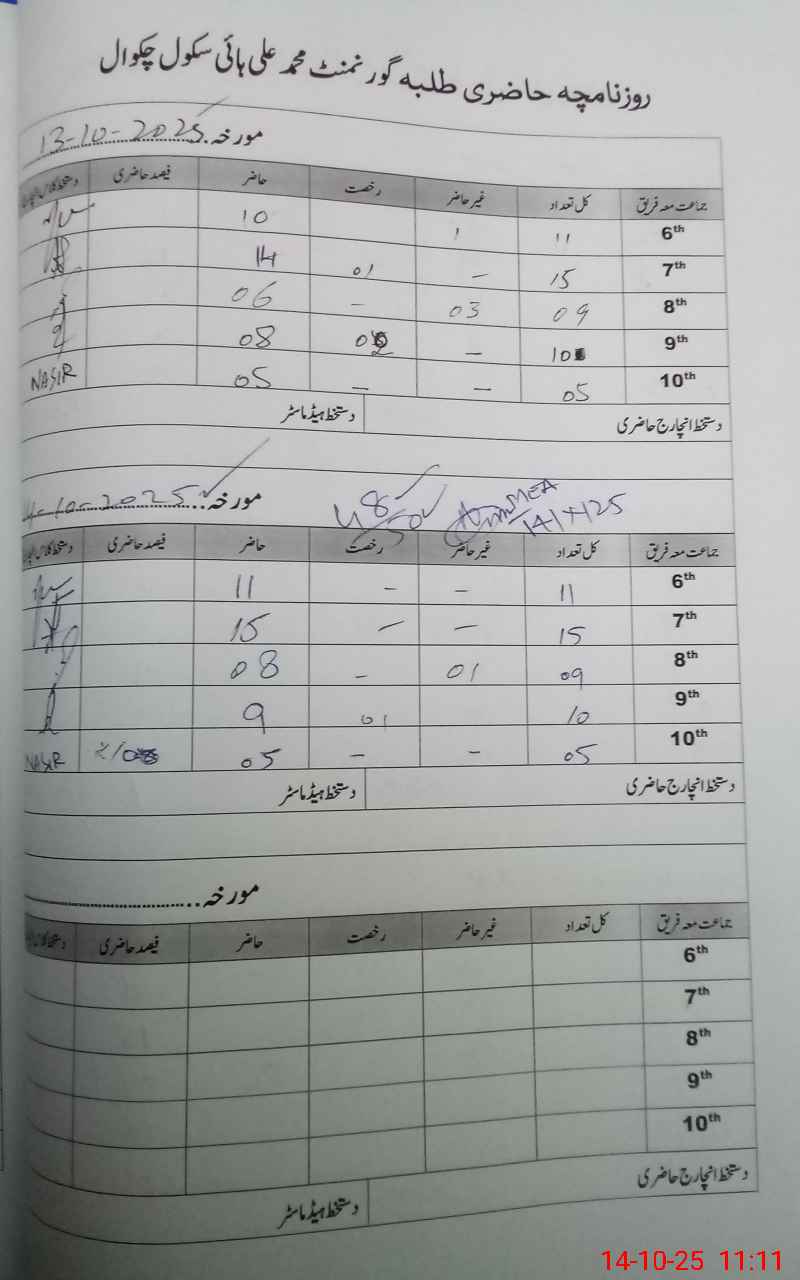 روزنامچہ حاضری طلبہ گورنمنٹ محمد علی ہائی سکول چکوال
مورخہ 13-10-2025
جماعت معہ فریق کل تعداد غیر حاضر رخصت حاضر فیصد حاضری دستخط کلاس
6th 11 1 10
7th 15 - 01 14
8th 09 03 - 06
9th 10 - 08
10th 05 - - 05 NASIR
دستخط انچارج حاضری دستخط ہیڈ ماسٹر
مورخہ 4-10-2025
48/50 MEA 14/X/25
جماعت معہ فریق کل تعداد غیر حاضر رخصت حاضر فیصد حاضری دستخط کلاس
6th 11 - - 11
7th 15 - - 15
8th 09 01 - 08
9th 10 01 9
10th 05 - - 05 NASIR
دستخط انچارج حاضری دستخط ہیڈ ماسٹر
مورخہ
جماعت معہ فریق کل تعداد غیر حاضر رخصت حاضر فیصد حاضری دستخط کلاس
6th
7th
8th
9th
10th
دستخط انچارج حاضری دستخط ہیڈ ماسٹر
14-10-25 11:11